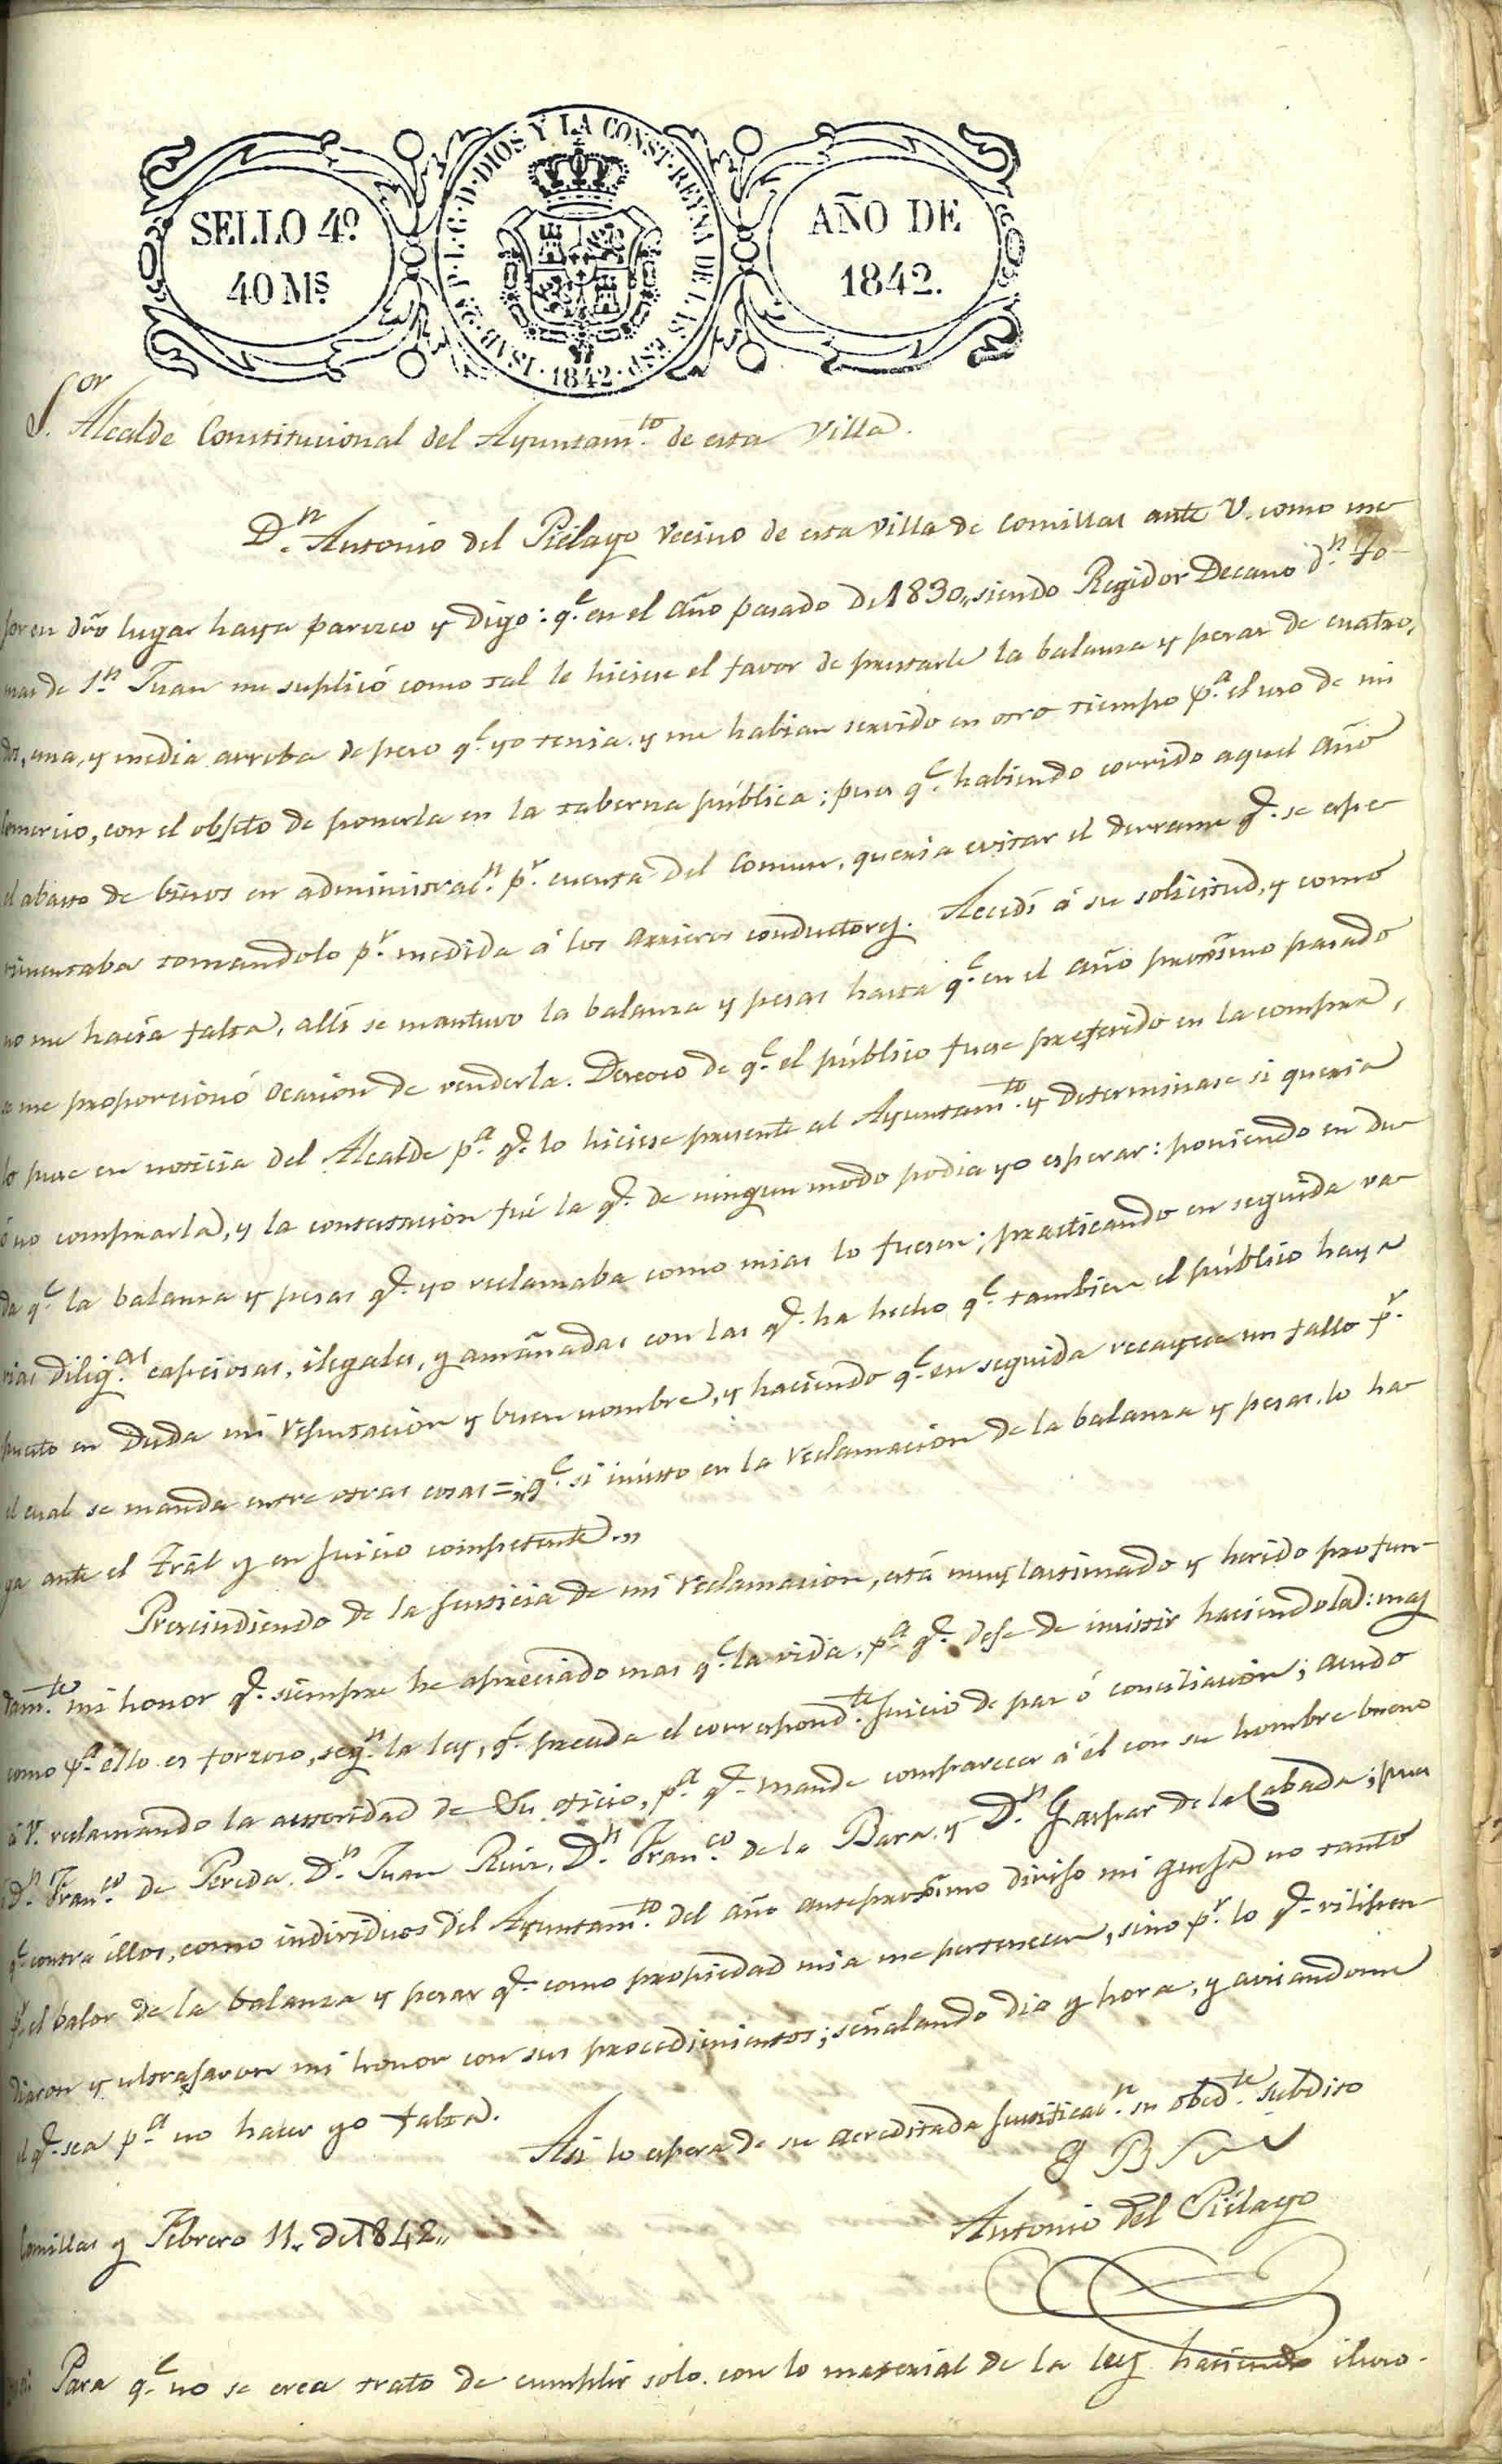 SELLO 4º
40 Mˢ
ISAB·2ª·P·L·G·D·DIOS Y LA CONST·REYNA DE LAS ESP·1842·
AÑO DE
1842.
Sᵒʳ Alcalde Constitucional del Ayuntamᵗᵒ de esta Villa.
Dⁿ Antonio del Piélago vecino de esta villa de Comillas ante V. como me-
jor en dr̃o lugar haya parezco y digo: qᵉ en el año pasado de 1830,, siendo Regidor Decano dⁿ To-
mas de Sⁿ Juan me suplicó como tal le hiciese el favor de prestarle la balanza y pesas de cuatro,
dos, una, y media arroba de peso qᵉ yo tenia y me habian servido en otro tiempo pᵃ el uso de mi
Comercio, con el objeto de ponerla en la taberna pública; pues qᵉ habiendo corrido aquel año
el abasto de binos en administracⁿ pʳ cuenta del Comun, queria evitar el derrame qᵉ se espe-
rimentaba tomandolo pʳ medida á los arrieros conductores. Accedí á su solicitud, y como
no me hacia falta, alli se mantuvo la balanza y pesas hasta qᵉ en el año proximo pasado
se me proporcionó ocasion de venderla. Deseoso de qᵉ el público fuese preferido en la compra,
lo puse en noticia del Alcalde pᵃ qᵉ lo hiciese presente al Ayuntamᵗᵒ y determinase si queria
ó no comprarla, y la contestacion fué la qᵉ de ningun modo podia yo esperar: poniendo en du-
da qᵉ la balanza y pesas qᵉ yo reclamaba como mias lo fuesen; practicando en seguida va-
rias diligᵃˢ capciosas, ilegales, y amañadas con las qᵉ ha hecho qᵉ tambien el público haya
puesto en duda mi reputacion y buen nombre, y haciendo qᵉ en seguida recayese un fallo pʳ
el cual se manda entre otras cosas =,, qᵉ si insisto en la reclamacion de la balanza y pesas, lo ha-
ga ante el Tral y en juicio competente.,,
Prescindiendo de la justicia de mi reclamacion, está muy lastimado y herido profun-
damᵗᵉ mi honor qᵉ siempre he apreciado mas qᵉ la vida, pᵃ qᵉ deje de insistir haciendola: mas
como pᵃ ello es forzoso, segⁿ la ley, qᵉ preceda el correspondᵗᵉ juicio de paz ó conciliacion; acudo
á V. reclamando la autoridad de su oficio, pᵃ qᵉ mande comparecer á él con su hombre bueno
á Dⁿ Franᶜᵒ de Pereda, Dⁿ Juan Ruiz, Dⁿ Franᶜᵒ de la Bara y Dⁿ Gaspar de la Cabada; pues
qᵉ contra éllos, como individuos del Ayuntamᵗᵒ del año anteproximo dirijo mi queja no tanto
pʳ el balor de la balanza y pesas qᵉ como propiedad mia me pertenecen, sino pʳ lo qᵉ vilipen-
diaron y ultrajaron mi honor con sus procedimientos; señalando dia y hora, y avisandome
el qᵉ sea pᵃ no hacer yo falta.
Asi lo espera de su acreditada justificacⁿ su obedᵗᵉ subdito
Q B S M
Comillas y Febrero 11,, de 1842,,
Antonio del Piélago
Para qᵉ no se crea trato de cumplir solo con lo material de la ley haciendo iluso-